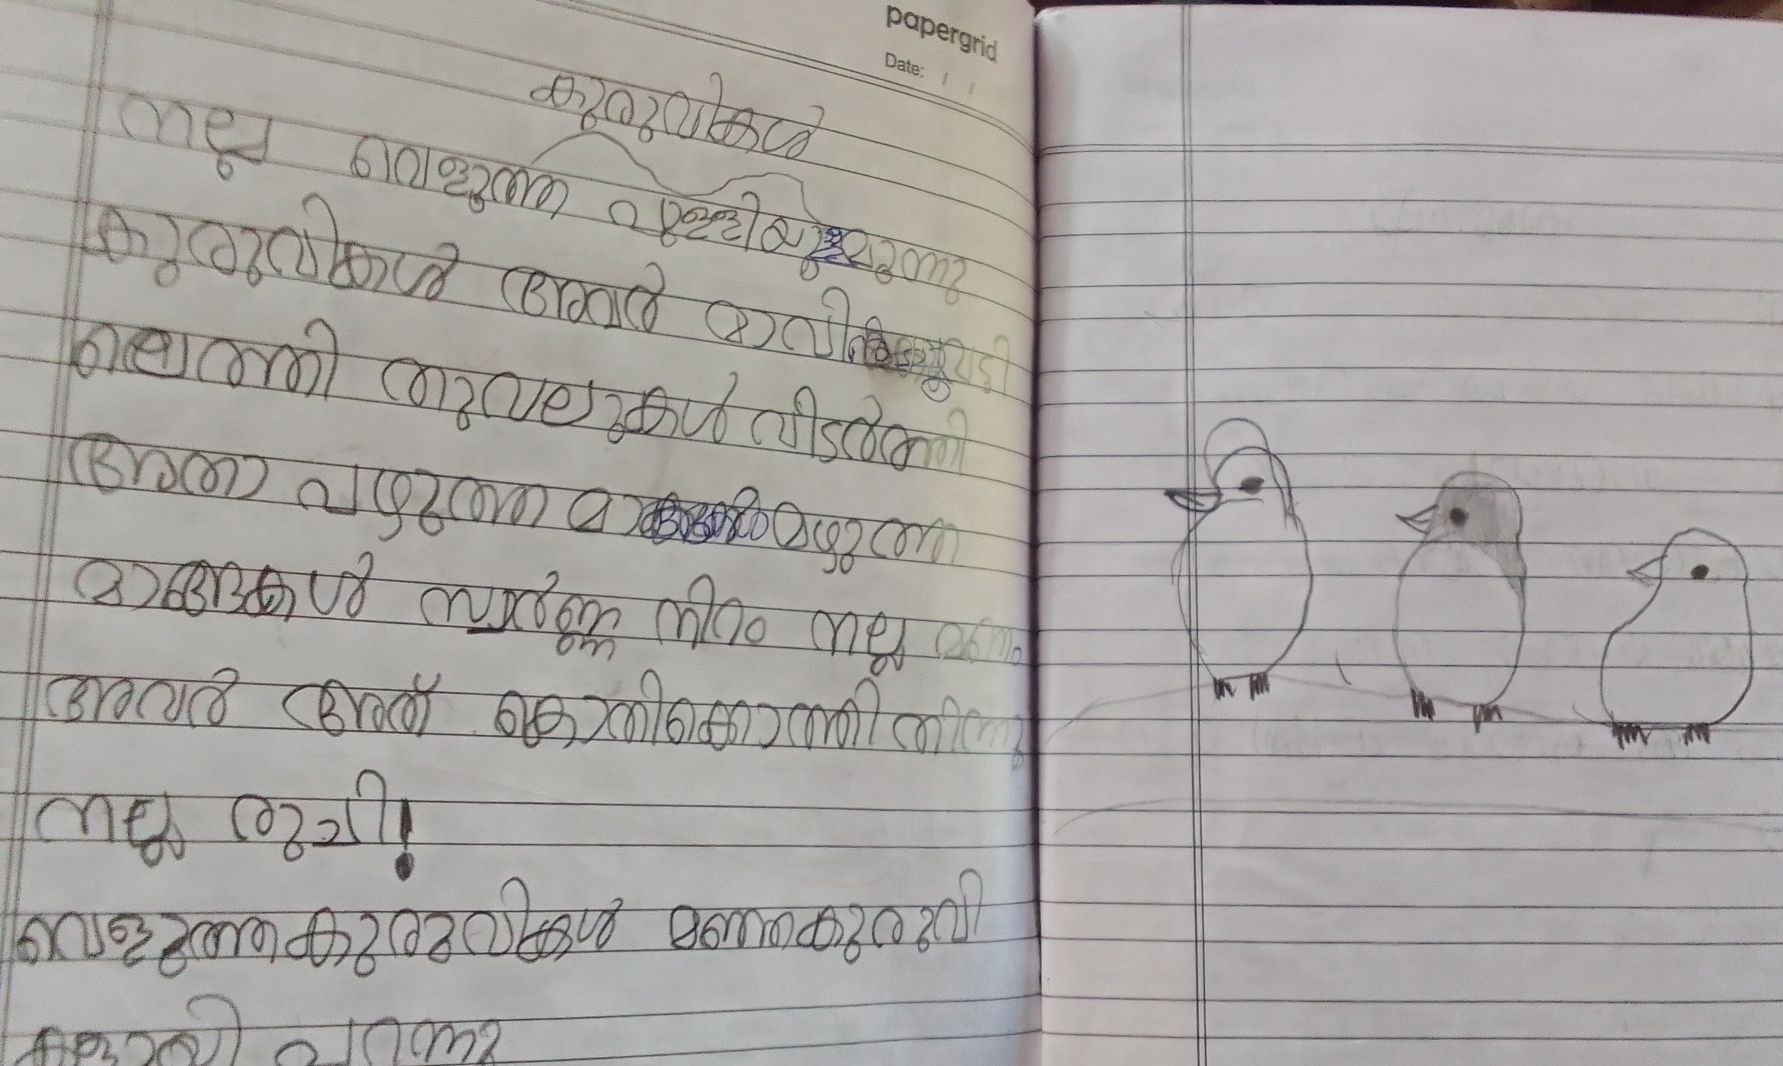 papergrid
Date: / /
കുരുവികൾ
നല്ല വെളുത്ത പുള്ളിയുള്ള മൂന്നു
കുരുവികൾ അവർ മാവി
ലെത്തി തൂവലുകൾ വിടർത്തി
അതാ പഴുത്ത മഴുത്ത
മാങ്ങകൾ സ്വർണ്ണ നിറം നല്ല മണം
അവർ അത് കൊതികൊത്തി തിന്നു
നല്ല രുചി!
വെളുത്തകുരുവികൾ മഞ്ഞകുരുവി
കളായി പറന്നു